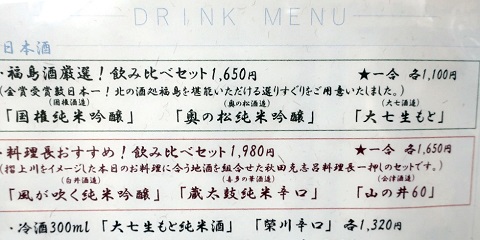 DRINK MENU
日本酒
・福島酒厳選！飲み比べセット1,650円 ★一合 各1,100円
(金賞受賞数日本一！北の酒処福島を堪能いただける選りすぐりをご用意いたしました。)
(国権酒造) (奥の松酒造) (大七酒造)
「国権純米吟醸」 「奥の松純米吟醸」 「大七生もと」
・料理長おすすめ！飲み比べセット1,980円 ★一合 各1,650円
(摺上川をイメージした本日のお料理に合う地酒を組合せた秋田克志呂料理長一押しのセットです。)
(白井酒造) (喜多の華酒造) (会津酒造)
「風が吹く純米吟醸」 「蔵太鼓純米辛口」 「山の井60」
・冷酒300ml 「大七生もと純米酒」 「榮川辛口」 各1,320円